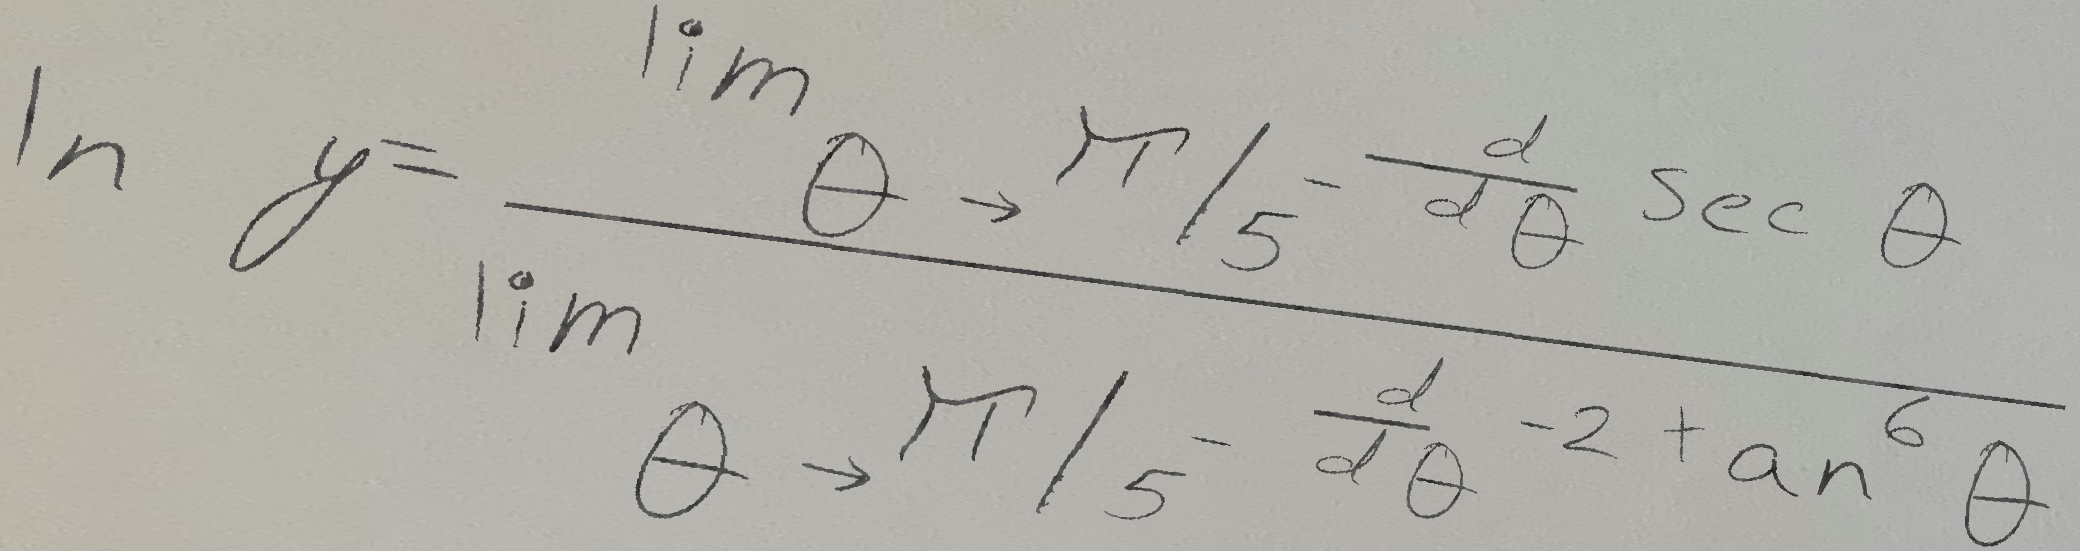 ln y = \frac{\lim_{\theta \to \pi/5^-} \frac{d}{d\theta} \sec \theta}{\lim_{\theta \to \pi/5^-} \frac{d}{d\theta} -2 \tan^6 \theta}